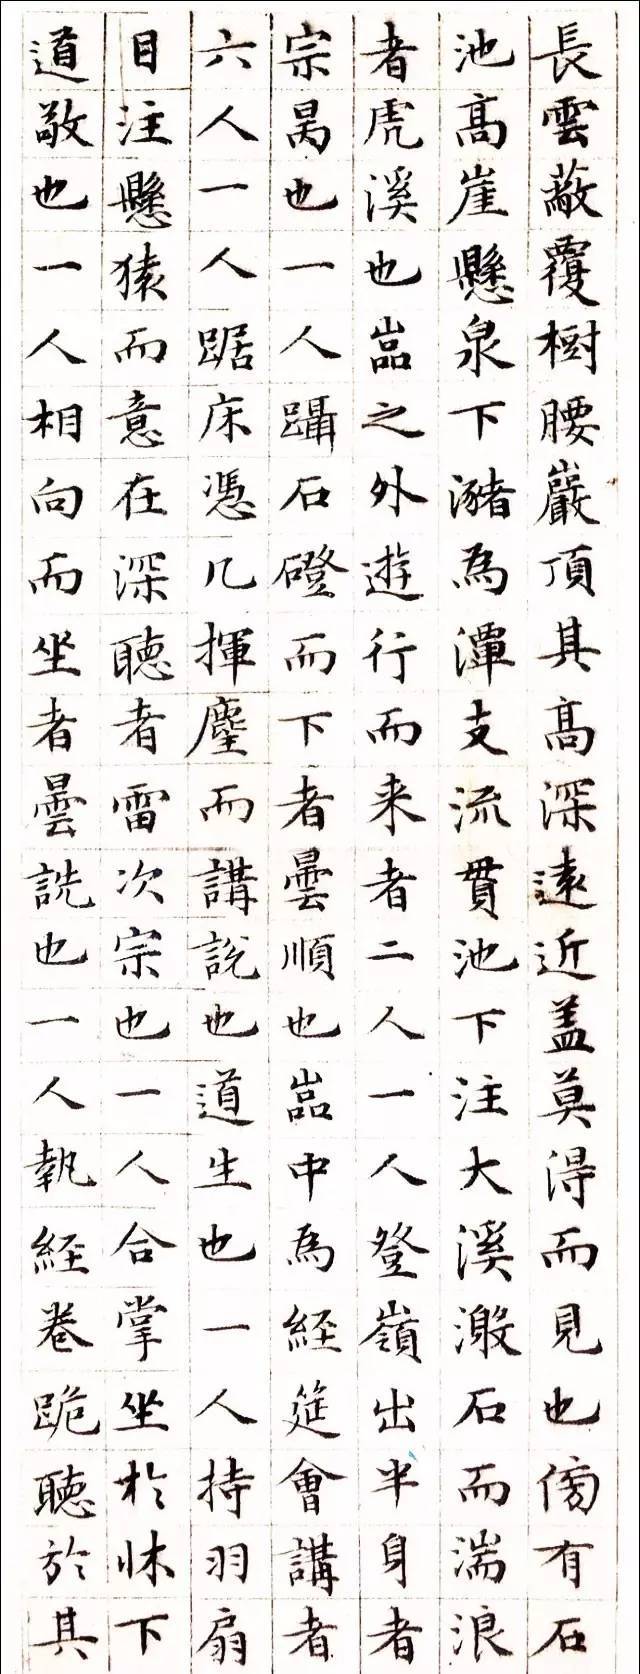 長雲蔽覆樹腰巖頂其髙深遠近盖莫得而見也傍有石
池髙崖懸泉下瀦為潭支流貫池下注大溪激石而湍浪
者虎溪也嵓之外遊行而来者二人一人登嶺出半身者
宗昺也一人躡石磴而下者曇順也嵓中為經筵會講者
六人一人踞床憑几揮麈而講說也道生也一人持羽扇
目注懸猿而意在深聽者雷次宗也一人合掌坐於牀下
道敬也一人相向而坐者曇詵也一人執經卷跪聽於其